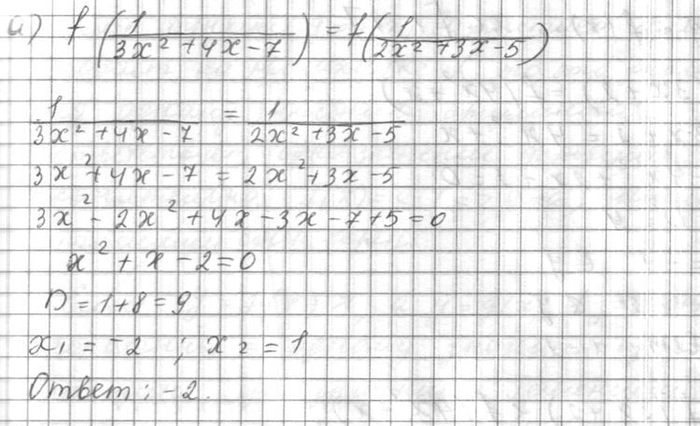 а) f(1/(3x² + 4x - 7)) = f(1/(2x² + 3x - 5))
1/(3x² + 4x - 7) = 1/(2x² + 3x - 5)
3x² + 4x - 7 = 2x² + 3x - 5
3x² - 2x² + 4x - 3x - 7 + 5 = 0
x² + x - 2 = 0
D = 1 + 8 = 9
x₁ = -2 ; x₂ = 1
Ответ: -2.